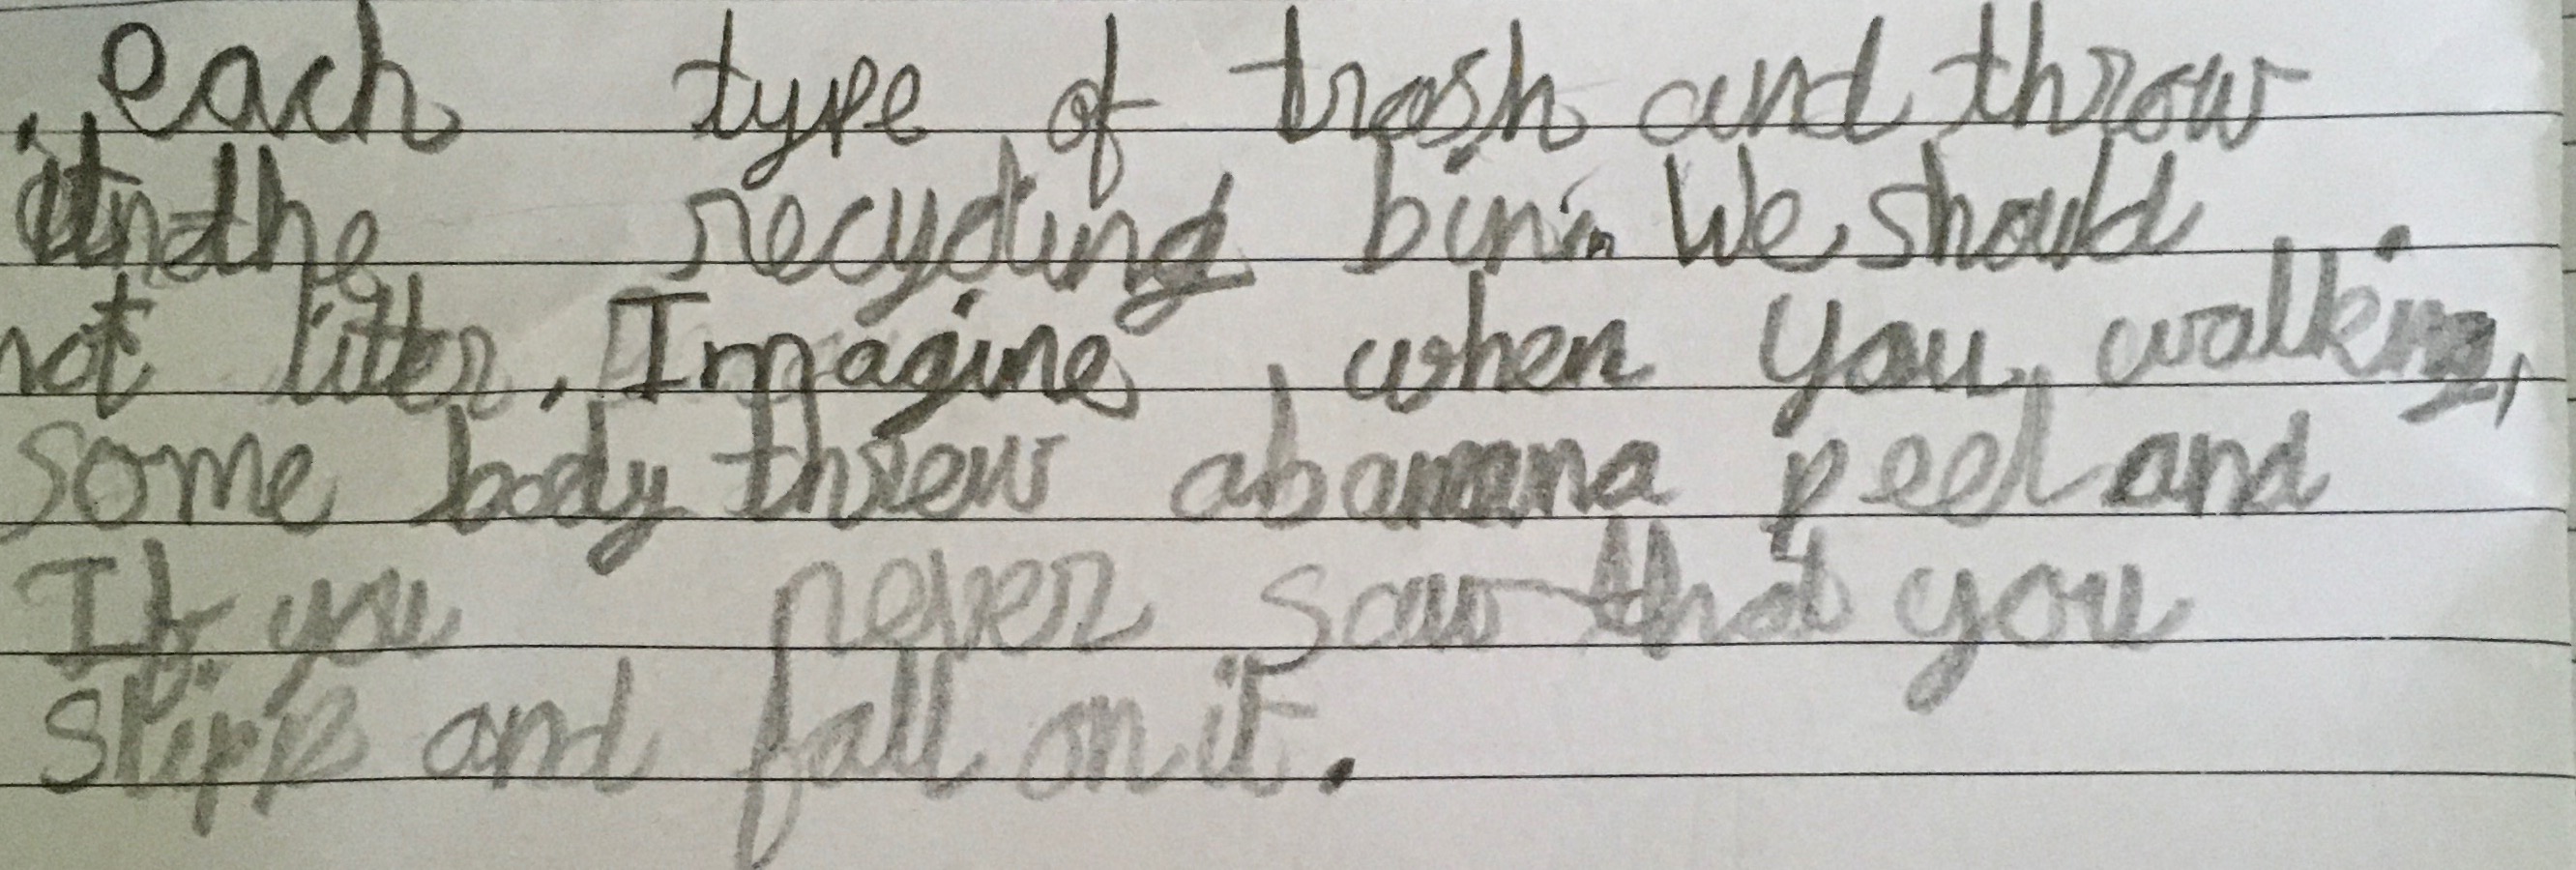 each type of trash and throw
in the recycling bin. We should
not litter. Imagine when you walking,
some body threw abanana peel and
If you never saw that you
slipp and fall on it.